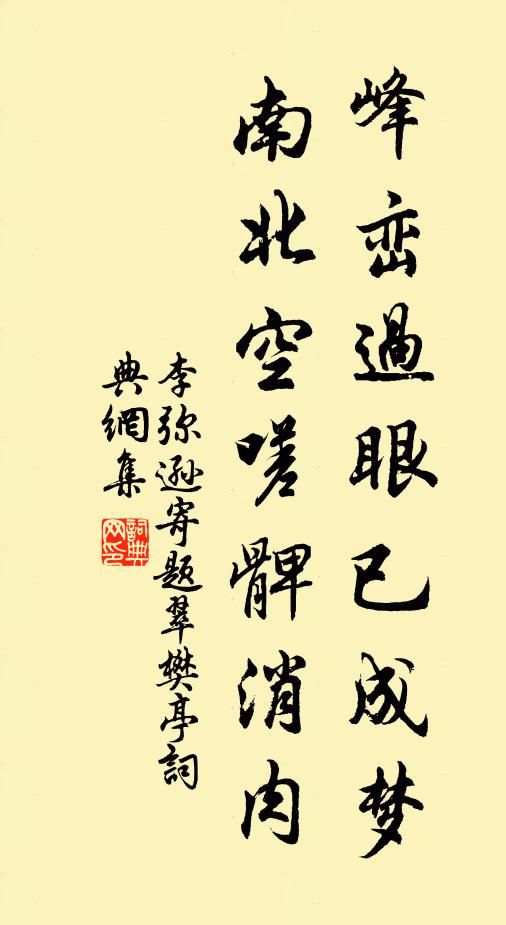 峰峦過眼已成梦
南北空嗟髀消肉
李弥逊寄题翠樊亭詞
典網集
詞典网印